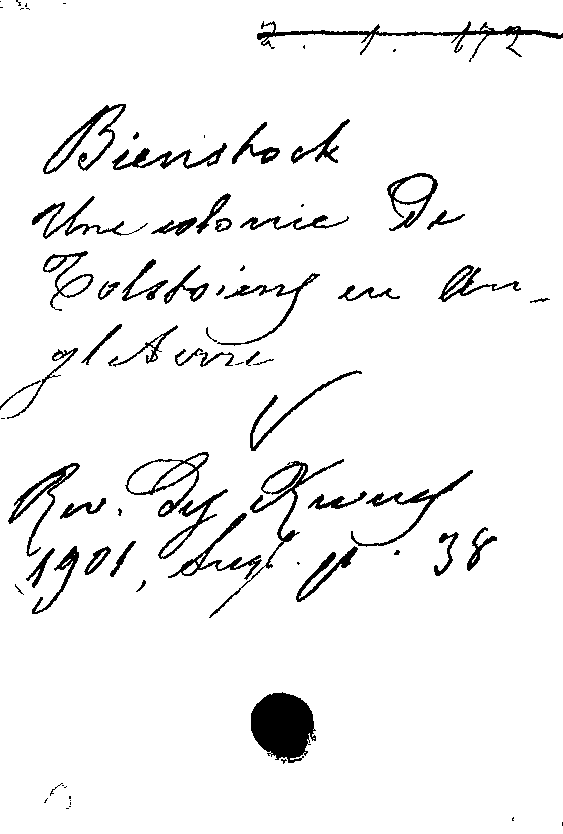 2. 1. 172
Bienstock
Une colonie de
Tolstoiens en An-
gleterre
Rev. des Revues
1901, Sept. p. 38